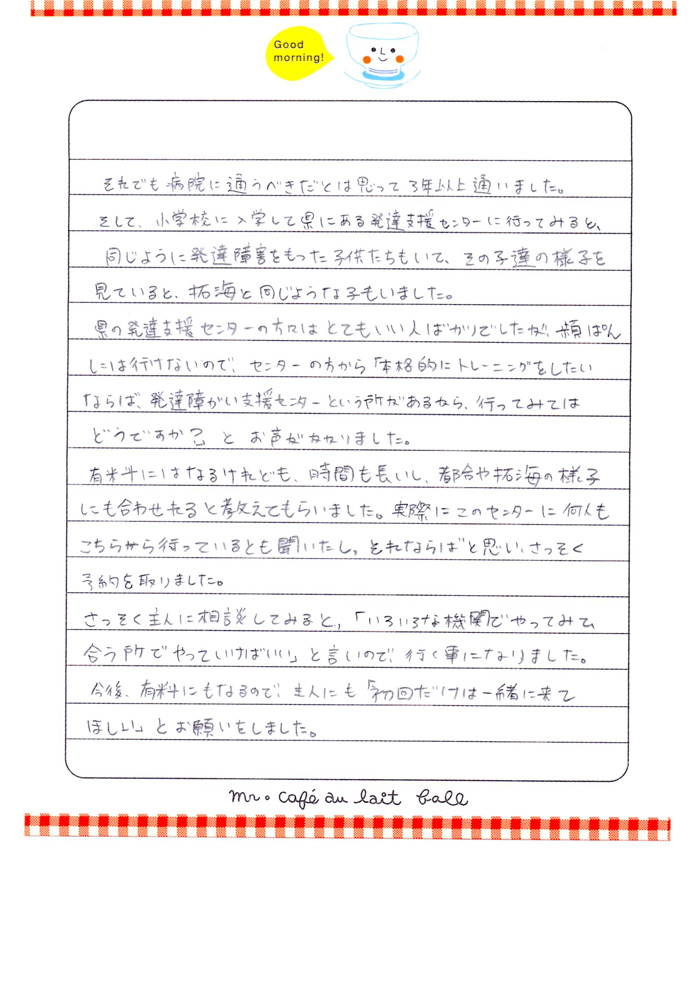 Good
morning!
それでも病院に通うべきだとは思って3年以上通いました。
そして、小学校に入学して県にある発達支援センターに行ってみると、
同じように発達障害をもった子供たちもいて、その子達の様子を
見ていると、拓海と同じような子もいました。
県の発達支援センターの方々はとてもいい人ばかりでしたが、頻ぱん
には行けないので、センターの方から「本格的にトレーニングをしたい
ならば、発達障がい支援センターという所があるから、行ってみては
どうですか？と お声がかかりました。
有料にはなるけれども、時間も長いし、都合や拓海の様子
にも合わせれると教えてもらいました。実際にこのセンターに何人も
こちらから行っているとも聞いたし、それならばと思い、さっそく
予約を取りました。
さっそく主人に相談してみると、「いろいろな機関でやってみて
合う所でやっていけばいい」と言いので、行く事になりました。
今後、有料にもなるので、主人にも「初回だけは一緒に来て
ほしい」とお願いをしました。
mr. café au lait ball